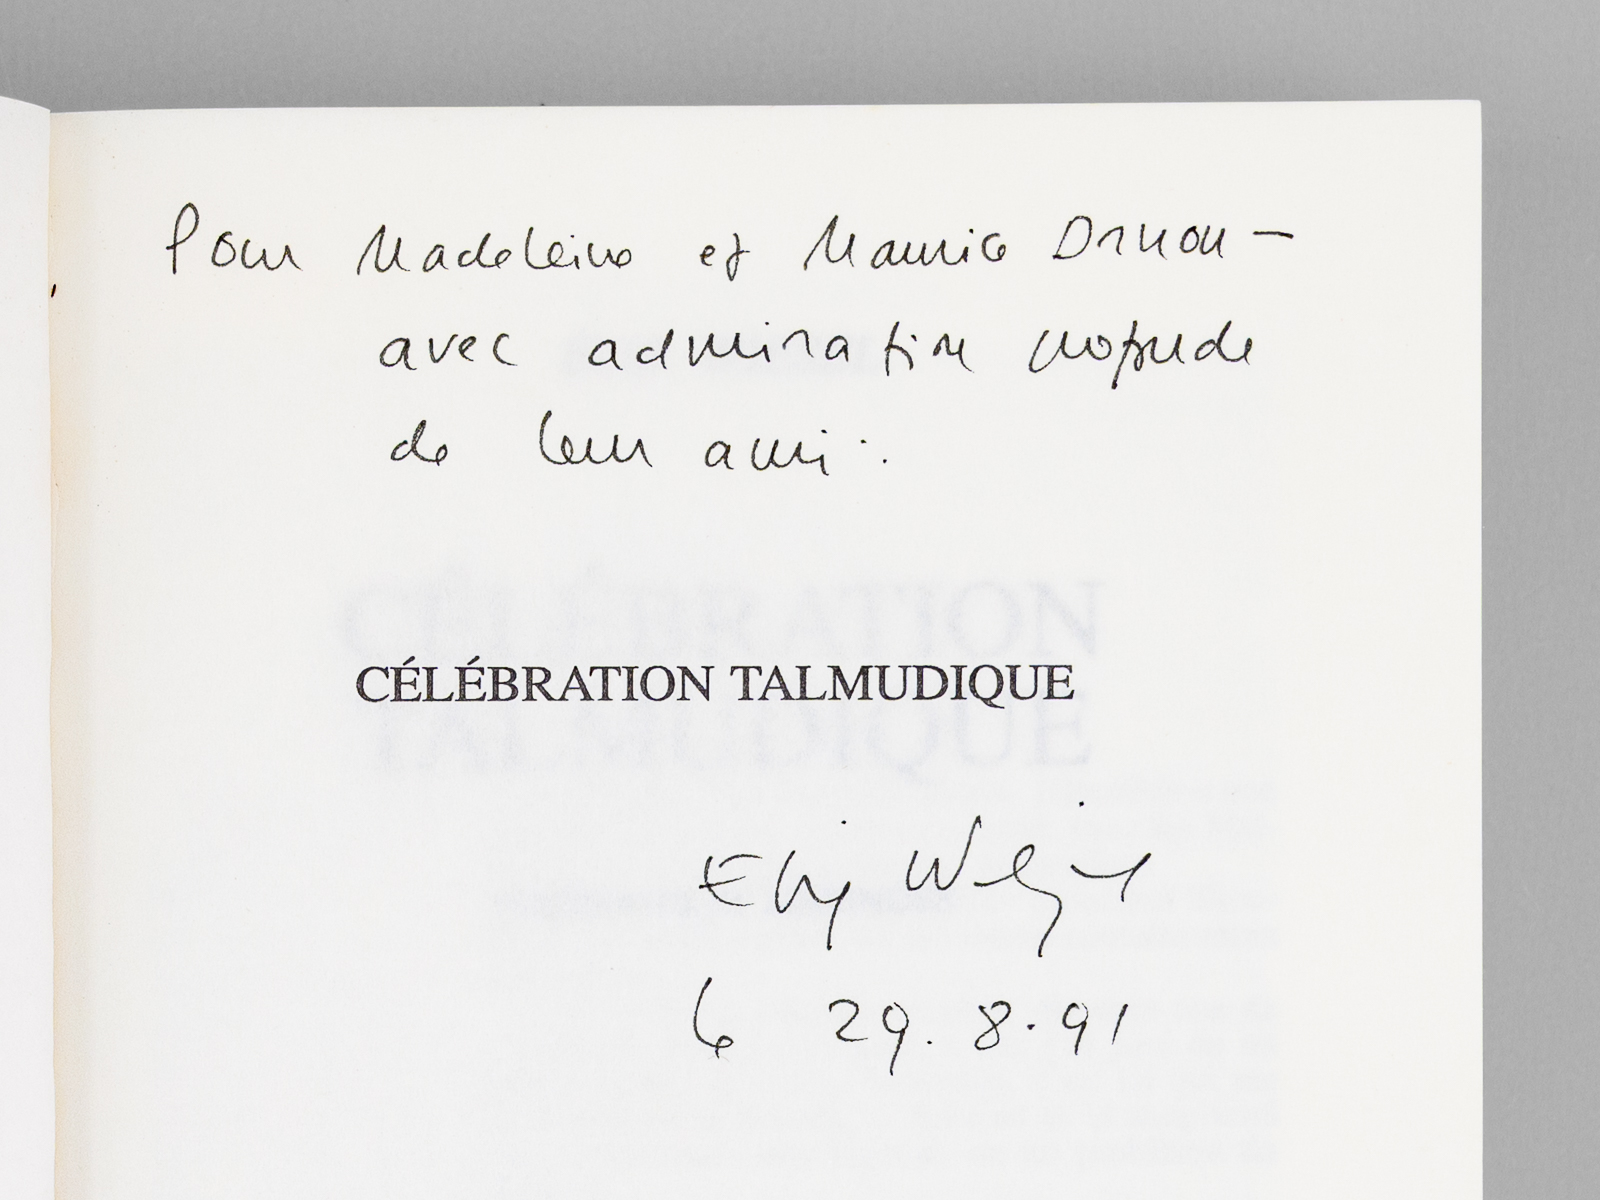 Pour Madeleine et Maurice Druon –
avec admiration profonde
de leur ami :
CÉLÉBRATION TALMUDIQUE
Elie Wiesel
le 29.8.91